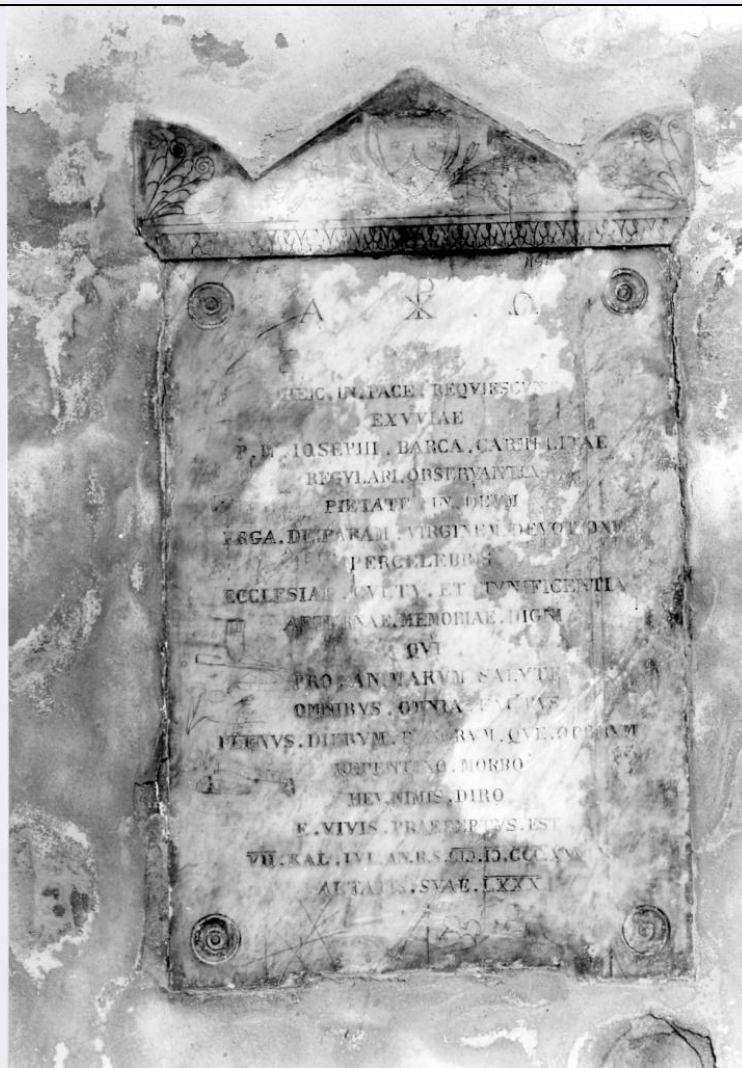 Α . ☧ . Ω
HEIC . IN . PACE . REQVIESCVNT
EXVVIAE
P . M . IOSEPHI . BARCA . CARMELITAE
REGVLARI . OBSERVANTIA
PIETATE . IN . DEVM
ERGA . DEIPARAM . VIRGINEM . DEVOTIONE
PERCELEBRIS
ECCLESIAE . CVLTV . ET . MVNIFICENTIA
AETERNAE . MEMORIAE . DIGNI
QVI
PRO . ANIMARVM . SALVTE
OMNIBVS . OMNIA . FACTVS
PLENVS . DIERVM . BONORVM . QVE . OPERVM
REPENTINO . MORBO
HEV . NIMIS . DIRO
E . VIVIS . PRAEREPTVS . EST
VII . KAL . IVL . AN . R . S .
AETATIS . SVAE .